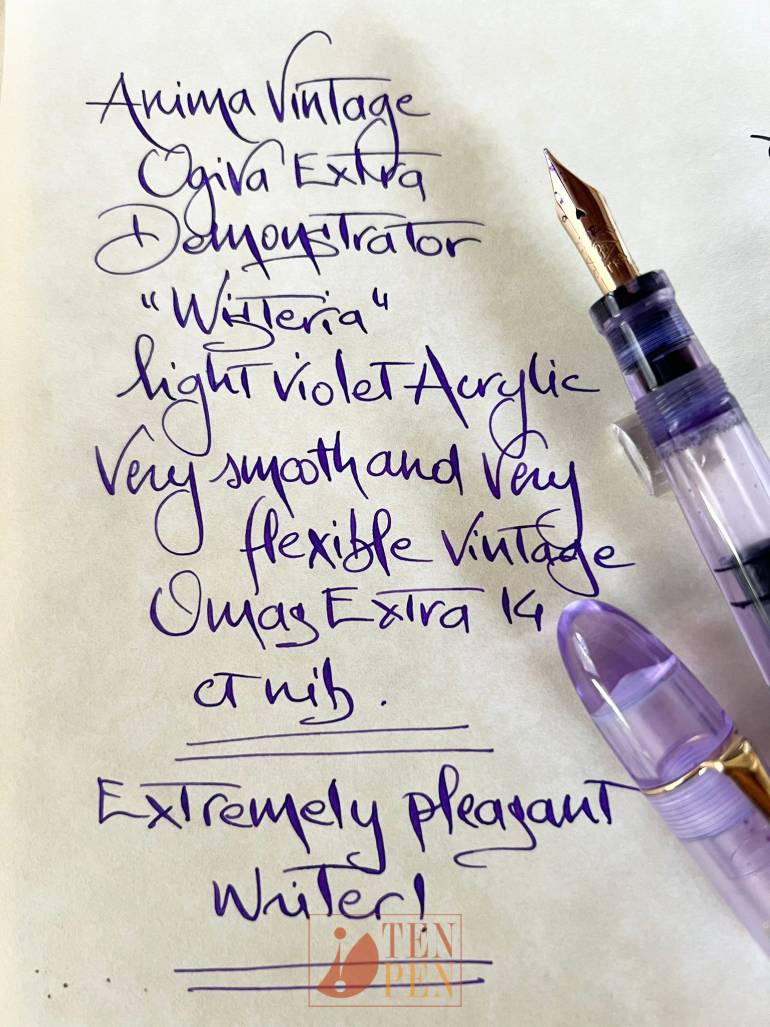 Anima Vintage
Ogiva Extra
Demonstrator
"Wisteria"
light violet Acrylic
Very smooth and Very
flexible Vintage
Omas Extra 14
ct nib.
Extremely pleasant
Writer!
TEN
PEN